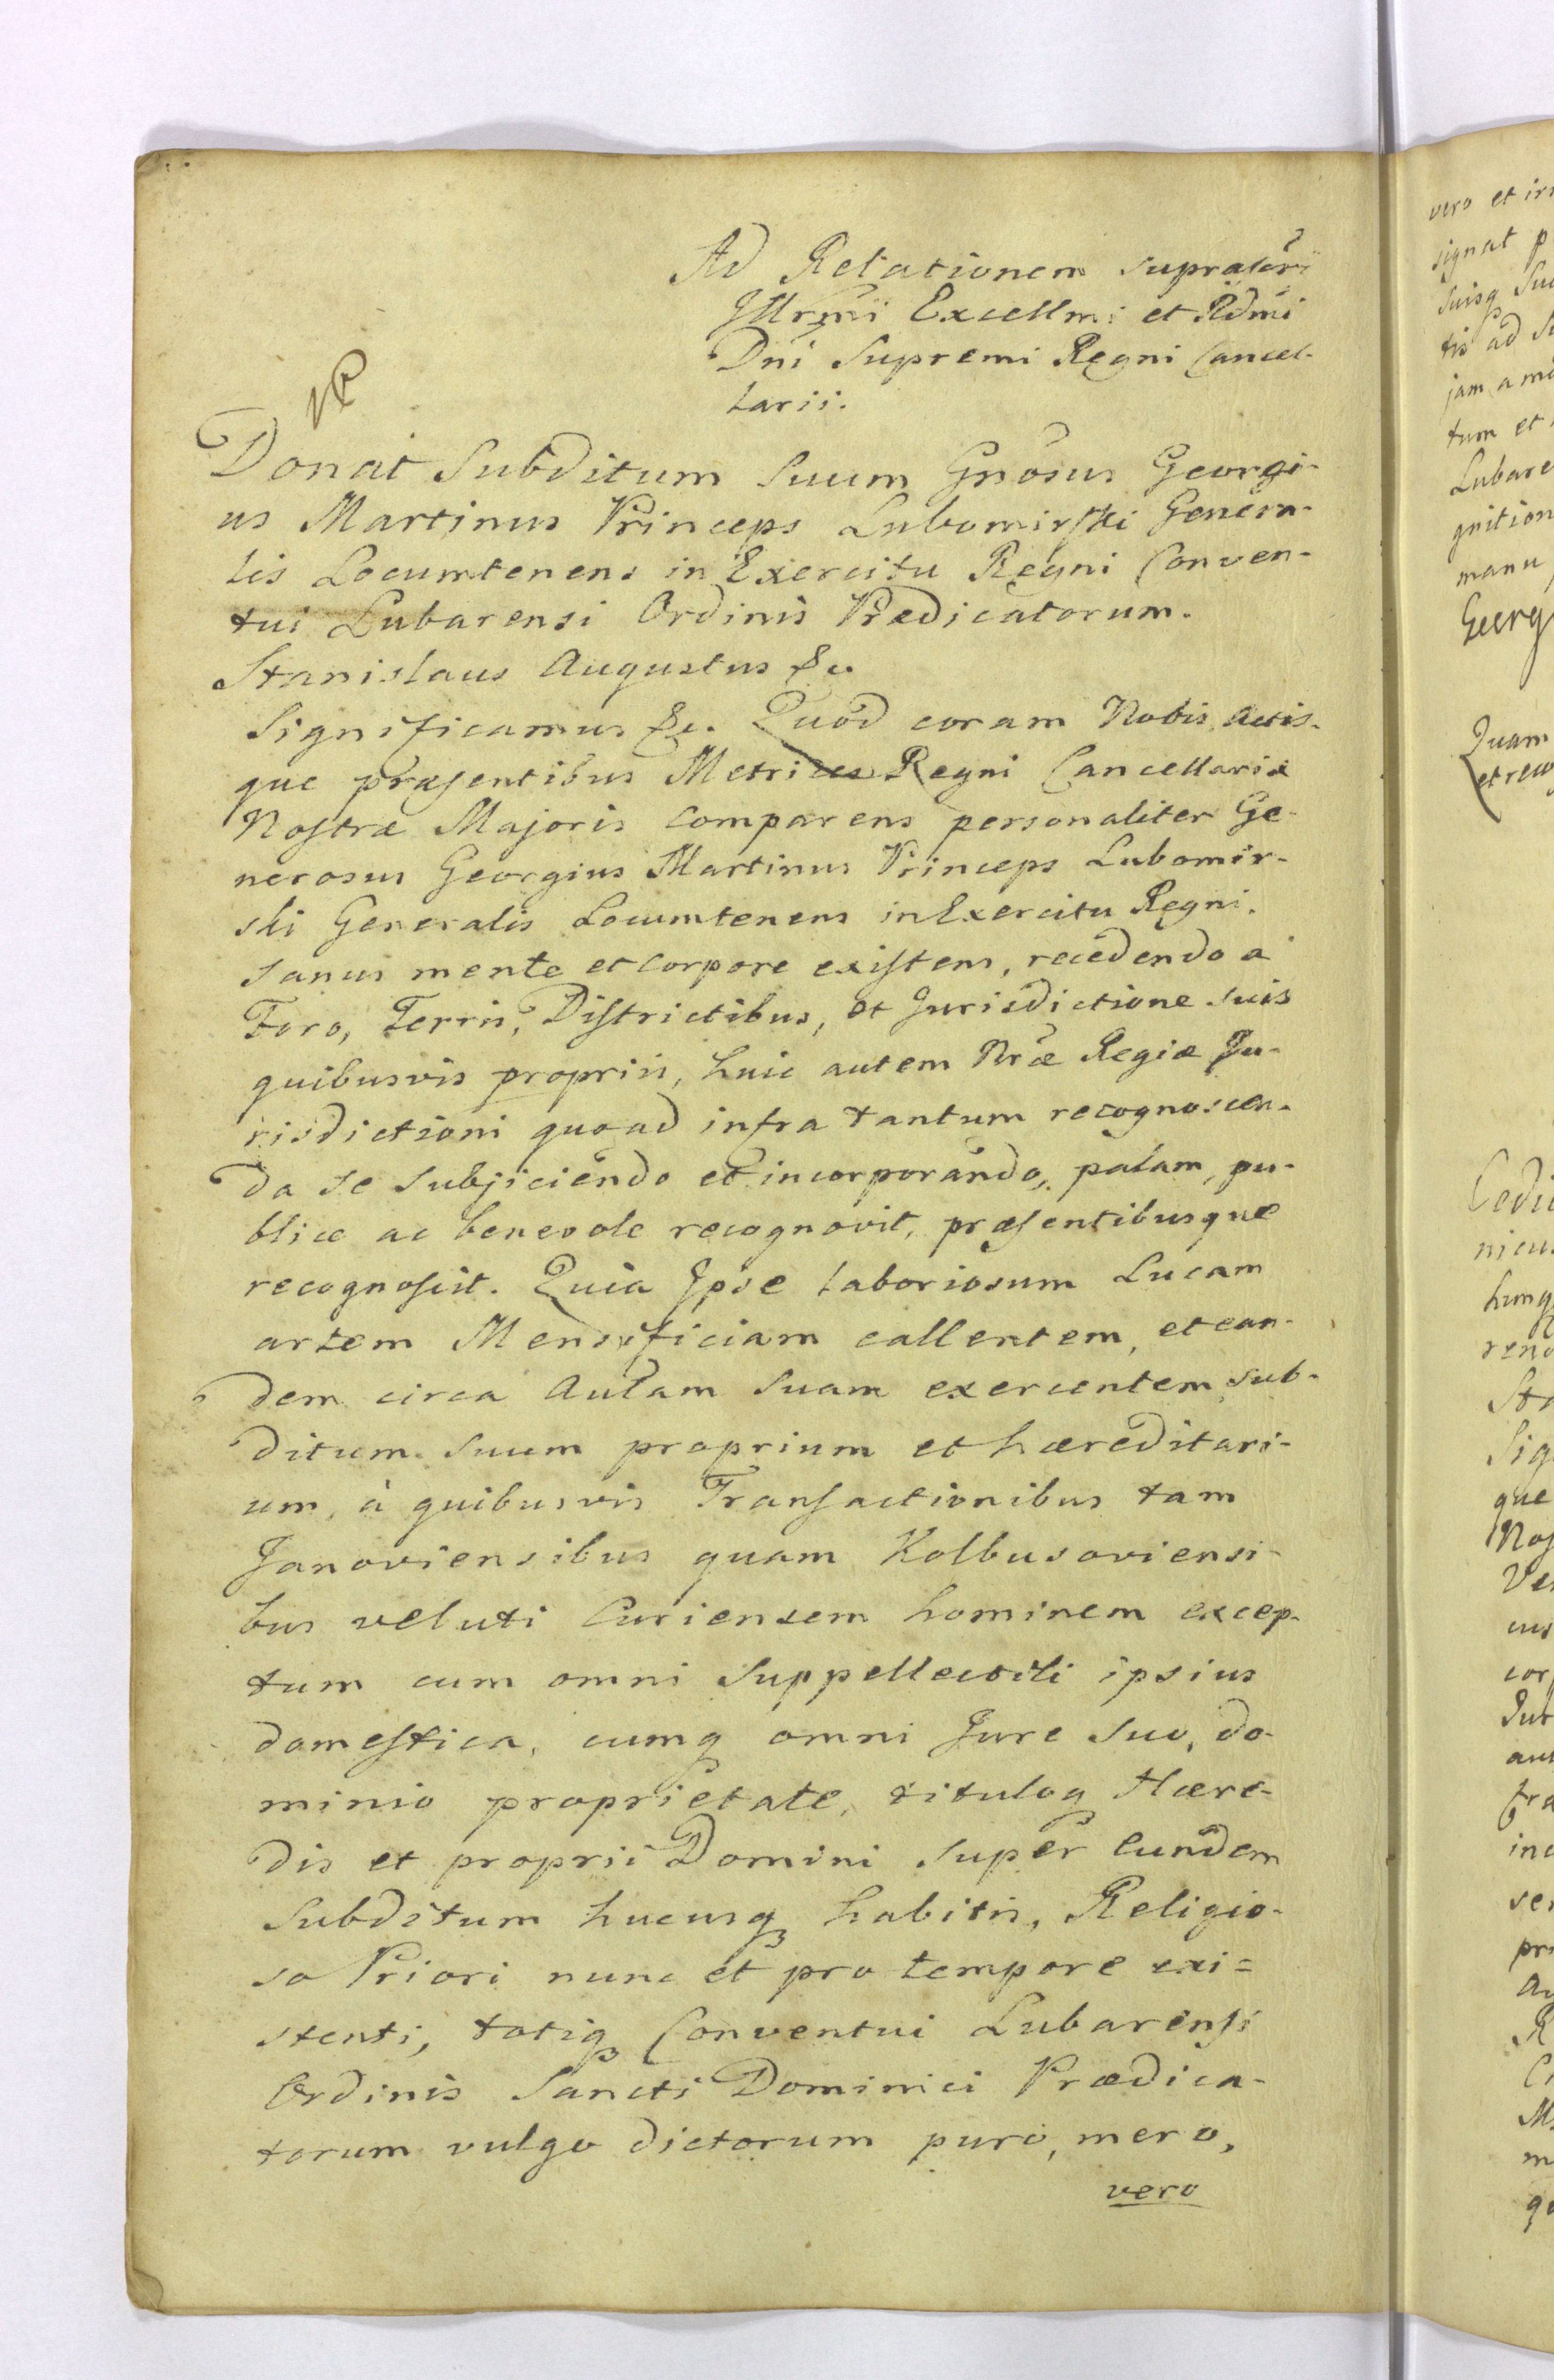 Ad Relationem suprascri
Illrmi Excellmi et Rdmi
Dni Supremi Regni Cancel-
larii.
Donat Subditum Suum Gnosus Georgi-
us Martinus Princeps Lubomirski Genera-
lis Locumtenens in Exercitu Regni Conven-
tui Lubarensi Ordinis Prædicatorum.
Stanislaus Augustus &c.
Significamus &c. Quod coram Nobis Actis-
que præsentibus Metrices Regni Cancellariæ
Nostræ Majoris comparens personaliter Ge-
nerosus Georgius Martinus Princeps Lubomir-
ski Generalis Locumtenens in Exercitu Regni.
sanus mente et corpore existens, recedendo a
Foro, Terris, Districtibus, et Jurisdictione suis
quibusvis propriis, huic autem Nræ Regiæ Ju-
risdictioni quoad infra tantum recognoscen-
da se subjiciendo et incorporando, palam, pu-
blice ac benevole recognovit, præsentibusque
recognoscit. Quia Ipse laboriosum Lucam
artem Mensificiam callentem, et ean-
dem circa Aulam Suam exercentem, sub-
ditum suum proprium et hæreditari-
um, à quibusvis Transactionibus tam
Janoviensibus quam Kolbusoviensi-
bus veluti Curiensem hominem excep-
tum cum omni Suppellectili ipsius
domestica, cumq omni Jure suo, do-
minio proprietate, tituloq Hære-
dis et proprii Domini super eundem
Subditum hucusq habitis, Religio-
so Priori nunc et pro tempore exi=
stenti, totiq Conventui Lubarensi
Ordinis Sancti Dominici Prædica-
torum vulgo dictorum puro, mero,
vero
vero et ir
signat p
suisq Su
tis ad S
jam a mo
tum et
Lubare
gnition
manu
Georg
Quam
et reco
nicu
hung
Sig
que
Nos